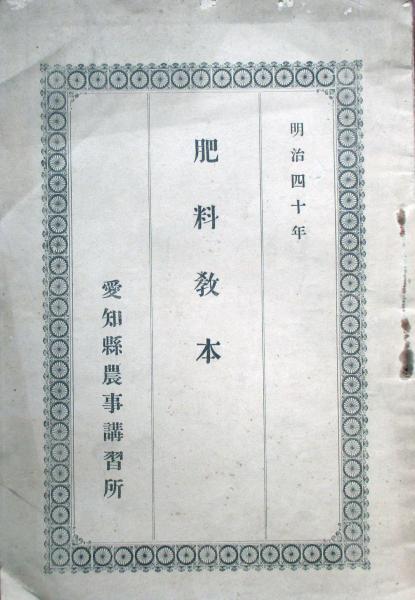 明治四十年
肥料教本
愛知縣農事講習所